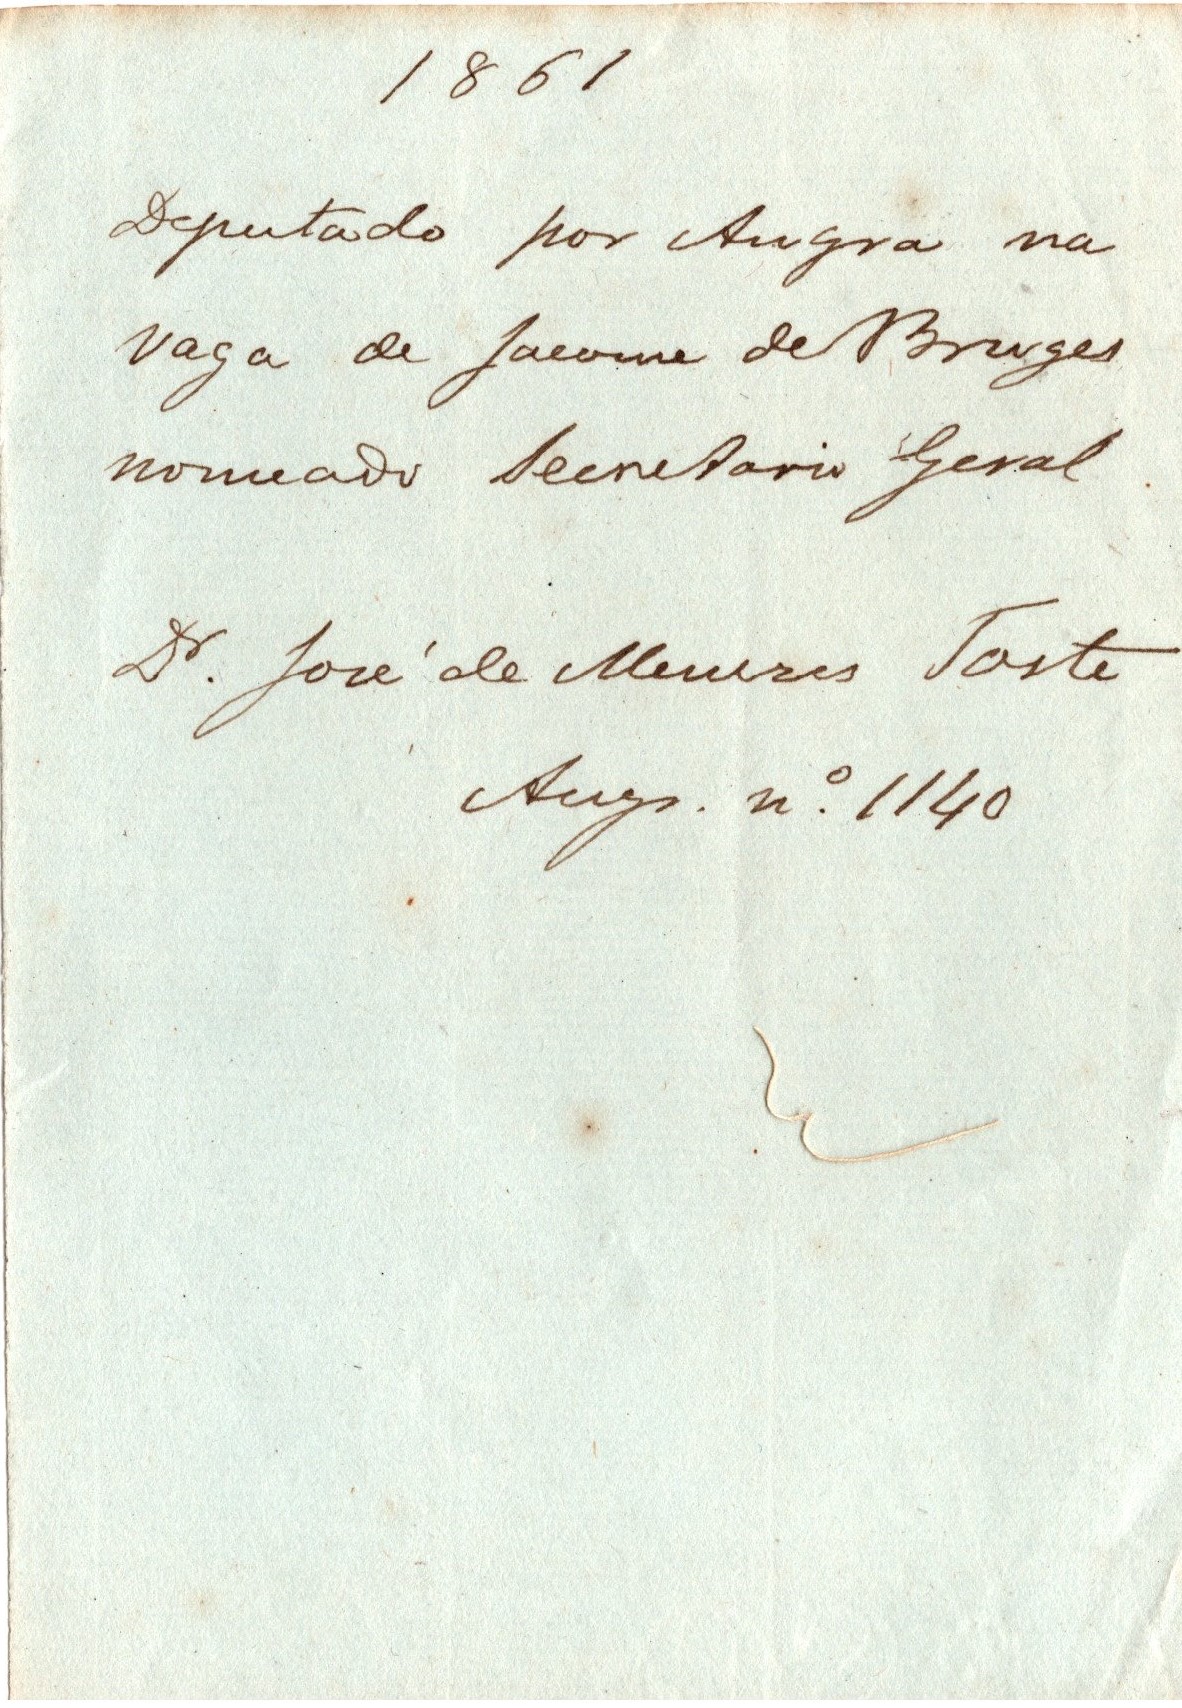 1861
Deputado por Angra na
vaga de Jacome de Bruges
nomeado Secretario Geral
Dr. José de Menezes Toste
Angr. nº. 1140